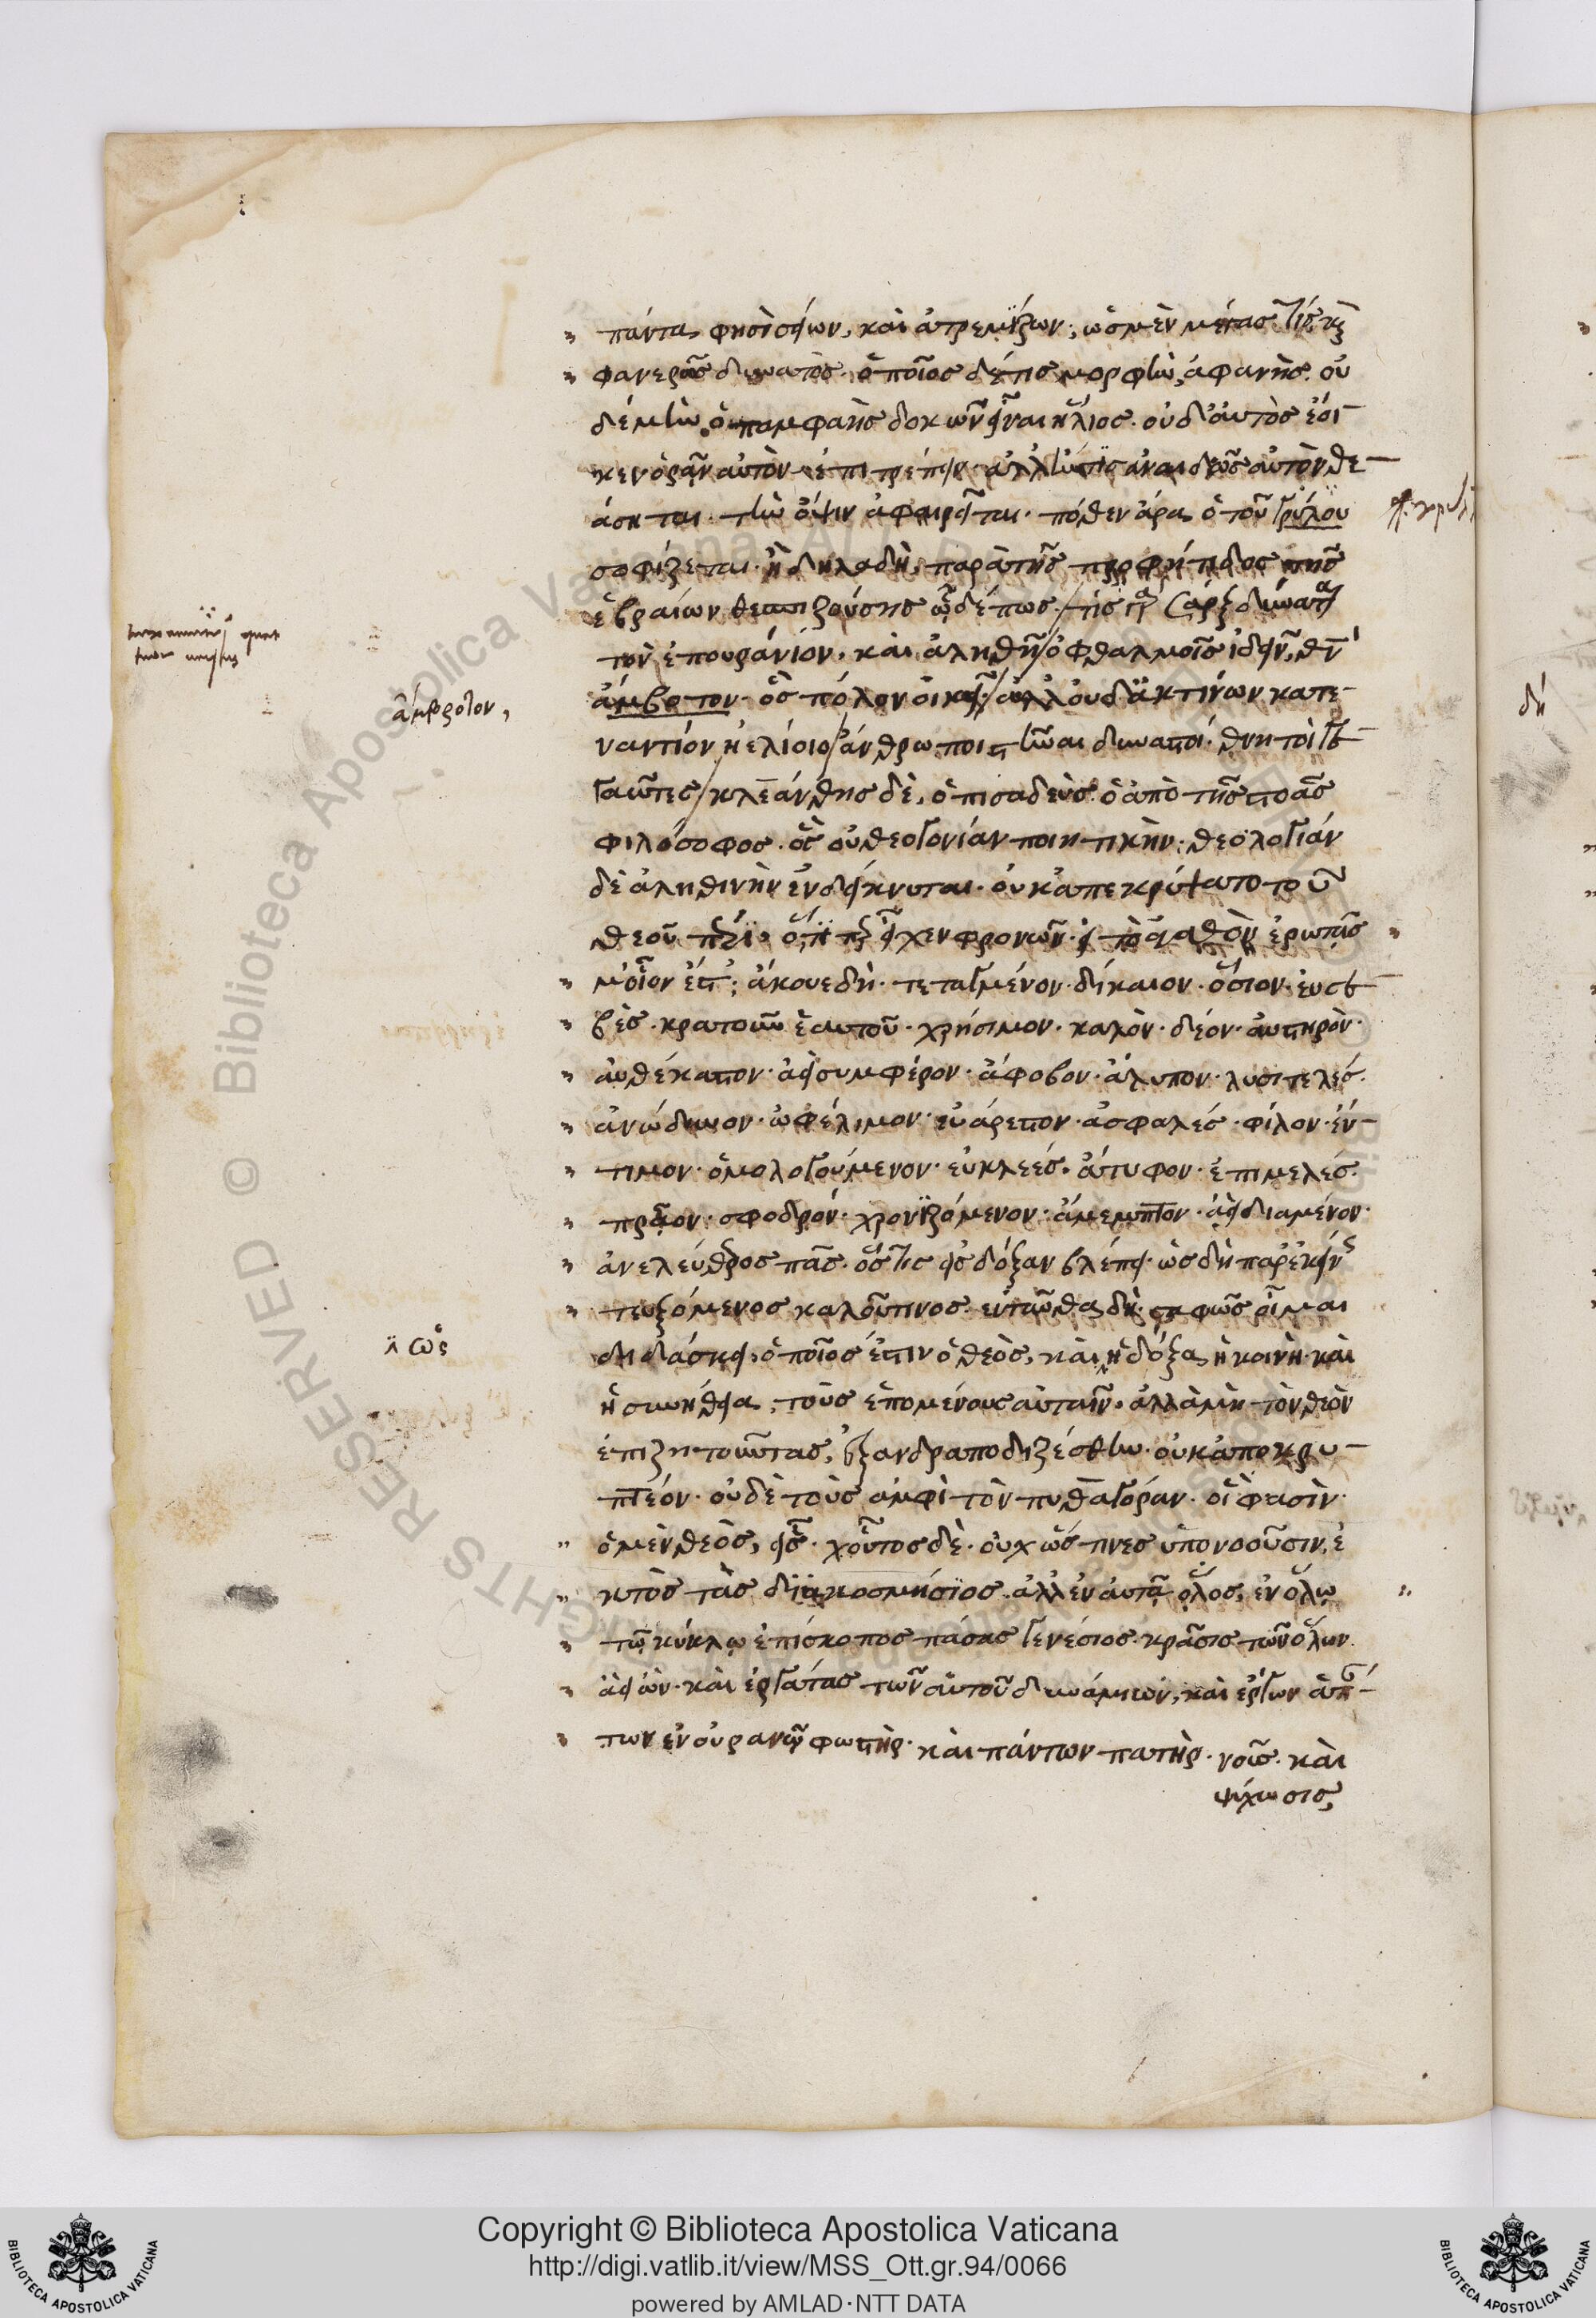 πάντα, φησὶ σείων, καὶ ἀτρεμίζων, ὡς μὲν μέγας τίς κ
φανερὸς δυνατὸς. ὁποῖος δέ τις μορφὴν, ἀφανὴς. οὐ
δὲ μὴν ὁ παμφαὴς δοκῶν εἶναι ἥλιος. οὐδ' αὐτὸς ἐοί-
κεν ὁρᾶν αὐτὸν ἐπιτρέπειν. ἀλλ' ἤν τις ἀναιδῶς αὐτὸν θε-
άσηται. τὴν ὄψιν ἀφαιρεῖται. πόθεν ἄρα ὁ τοῦ γρύλου
σοφίζεται. ἢ δηλαδὴ, παρὰ τῆς προφήτιδος τῆς
ἑβραίων θεσπιζούσης ὧδέ πως. / τίς γὰρ σάρξ δύναται
τὸν ἐπουράνιον, καὶ ἀληθῆ / ὀφθαλμοῖς ἰδεῖν, θν
ἄμβροτον. ὃς πόλον οἰκεῖ / ἀλλ' οὐδ' ἀκτίνων κατε-
ναντίον ἠελίοιο / ἄνθρωποι στῆναι δυνατοί. θνητοὶ γε-
γαῶτες / κλεάνθης δὲ, ὁ πισαδεὺς. ὁ ἀπὸ τῆς στοᾶς
φιλόσοφος. ὃς οὐ θεογονίαν ποιητικὴν. θεολογίαν
δὲ ἀληθινὴν ἐνδείκνυται. οὐκ ἀπεκρύψατο τοῦ
θεοῦ πέρι, ὅτι περ εἶχεν φρονῶν. εἰ τὸ ἀγαθὸν ἐρωτᾷς
μ' οἷον ἐστ'; ἄκουε δὴ. τεταγμένον. δίκαιον. ὅσιον. εὐσε-
βὲς. κρατοῦν ἑαυτοῦ. χρήσιμον. καλὸν. δέον. αὐστηρὸν.
αὐθέκαστον. ἀεὶ συμφέρον. ἄφοβον. ἄλυπον. λυσιτελές.
ἀνώδυνον. ὠφέλιμον. εὐάρεστον. ἀσφαλές. φίλον. ἔν-
τιμον. ὁμολογούμενον. εὐκλεές. ἄτυφον. ἐπιμελές.
πρᾶον. σφοδρόν. χρονιζόμενον. ἄμεμπτον. ἀεὶ διαμένον.
ἀνελεύθερος πᾶς. ὅστις εἰς δόξαν βλέπει. ὡς δὴ παρ' ἐκείνης
τευξόμενος καλοῦ τινος. ἐνταῦθα δὴ σαφῶς οἶμαι
διδάσκει, ὁποῖός ἐστιν ὁ θεὸς, καὶ ἡ δόξα ἡ κοινὴ. καὶ
ἡ συνήθεια, τοὺς ἑπομένους αὐταῖν. ἀλλὰ μὴ τὸν θεὸν
ἐπιζητοῦντας, ἐξανδραποδιζέσθην. οὐκ ἀποκρυ-
πτέον. οὐδὲ τοὺς ἀμφὶ τὸν πυθαγόραν. οἵ φασὶν.
ὁ μὲν θεὸς, εἷς. χοὖτος δὲ. οὐχ ὥς τινες ὑπονοοῦσιν, ἐ
κτὸς τᾶς διακοσμήσιος. ἀλλ' ἐν αὐτᾷ ὅλος, ἐν ὅλῳ
τῷ κύκλῳ ἐπίσκοπος πάσας γενέσιος. κρᾶσις τῶν ὅλων.
ἀεὶ ὢν. καὶ ἐργάτας τῶν αὑτοῦ δυνάμιων, καὶ ἔργων ἁπάν-
των ἐν οὐρανῷ φωστὴρ. καὶ πάντων πατὴρ. νοῦς. καὶ
ψύχωσις,
ἄμβροτον,
λ ὡς
δή
Copyright © Biblioteca Apostolica Vaticana
http://digi.vatlib.it/view/MSS_Ott.gr.94/0066
powered by AMLAD·NTT DATA
BIBLIOTECA APOSTOLICA VATICANA
BIBLIOTECA APOSTOLICA VATICANA